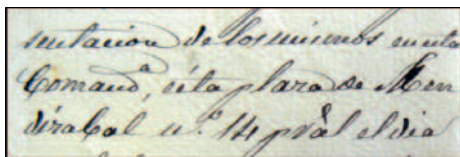 sentacion de los mismos en esta
Comandª, sita plaza de Men
dizabal nº 14 pral el dia